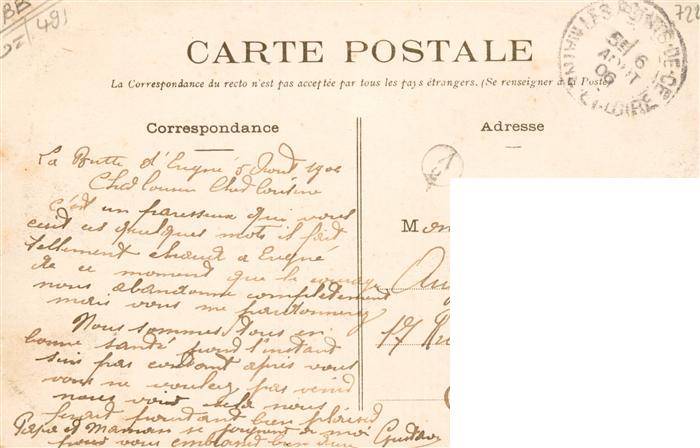 BB
491
722
CARTE POSTALE
La Correspondance du recto n'est pas acceptée par tous les pays étrangers. (Se renseigner à la Poste)
Correspondance
Adresse
LES PONTS-DE-CÉ
6
AOUT
06
ET-LOIRE
La Butte d'Erigné 5 Aout 190
Cher Cousin Cher Cousine
c'est un paresseux qui vous
ecrit ces quelques mots il fait
tellement chaud a Erigné
de ce moment que le courage
nous abandonne complètement
mais vous me pardonnerez
Nous sommes tous en
bonne santé pour l'instant
suis pas content après vous
vous ne voulez pas venir
nous voir cela nous
ferait pourtant bien plaisir
Papa et Maman se joignent a moi
pour vous embrasser bien
Gustave
M
17 Ru